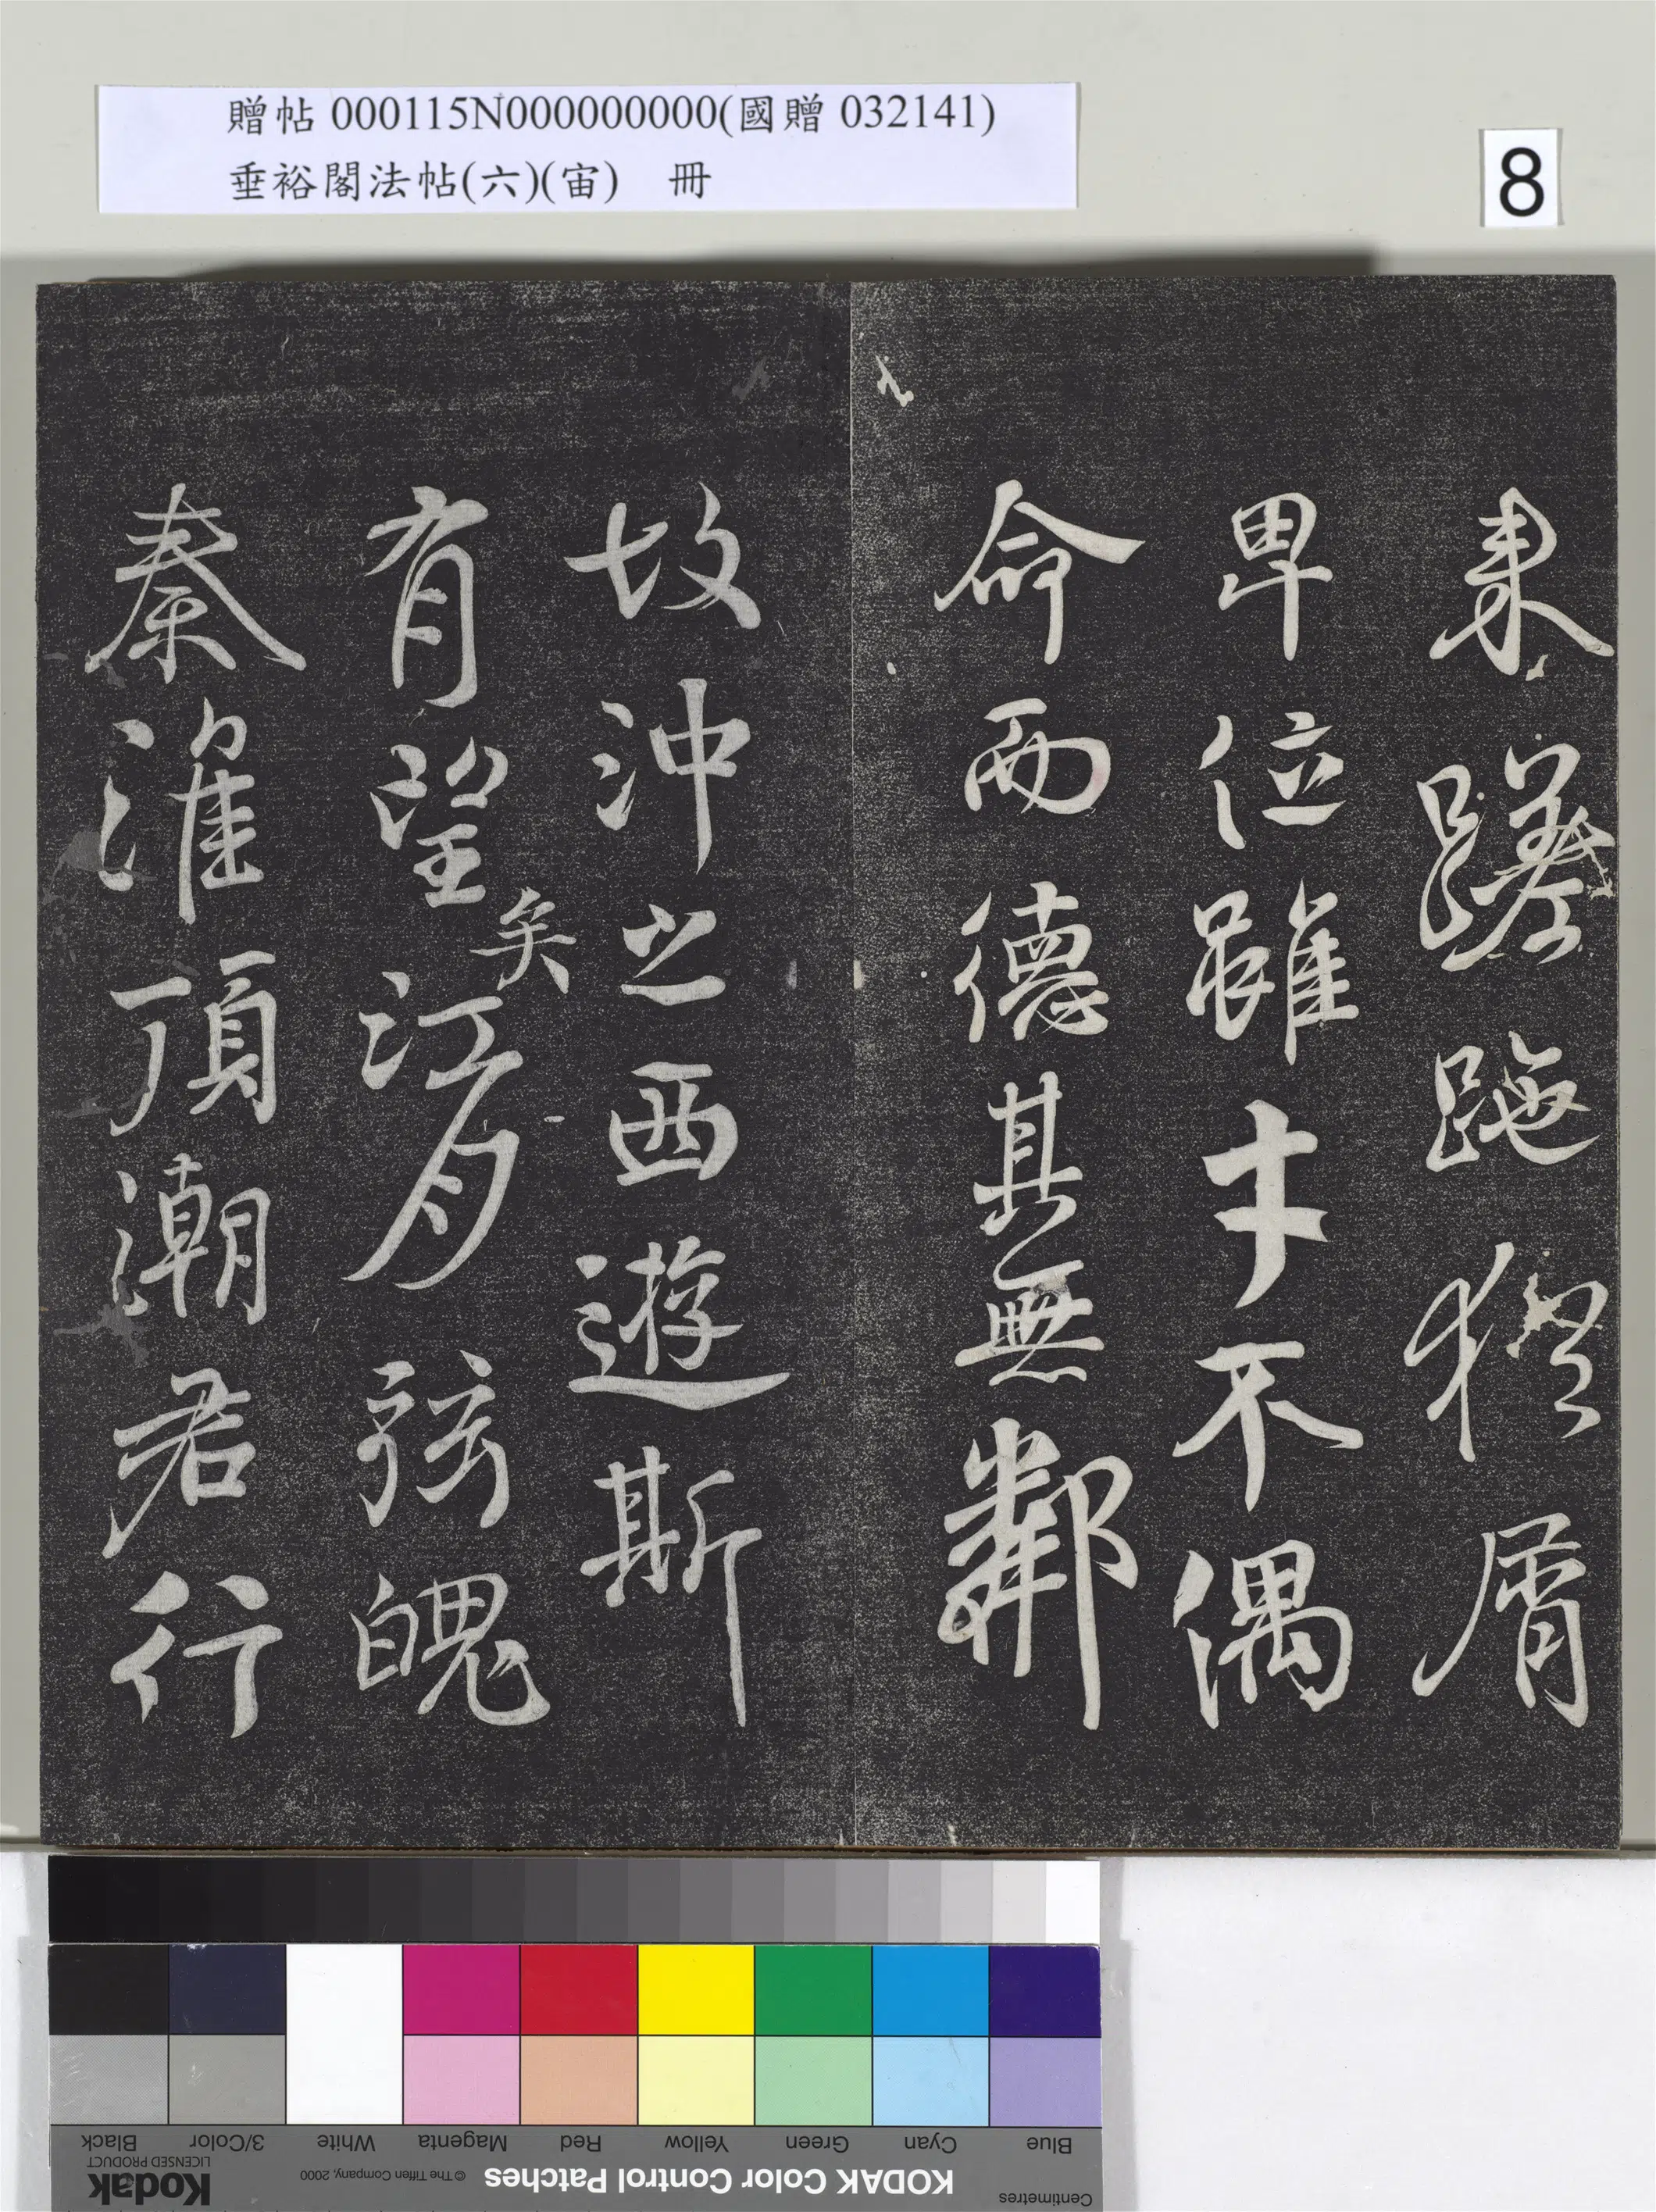 贈帖 000115N000000000(國贈 032141)
垂裕閣法帖(六)(宙) 冊
8
来蹉跎猶屑
卑位雖才不偶
命而德其無鄰
故沖之西遊斯
有望矣江月弦魄
秦淮頂潮君行
Blue Cyan Green Yellow Red Magenta White 3/Color Black
Centimetres
KODAK Color Control Patches
© The Tiffen Company, 2000
Kodak
LICENSED PRODUCT